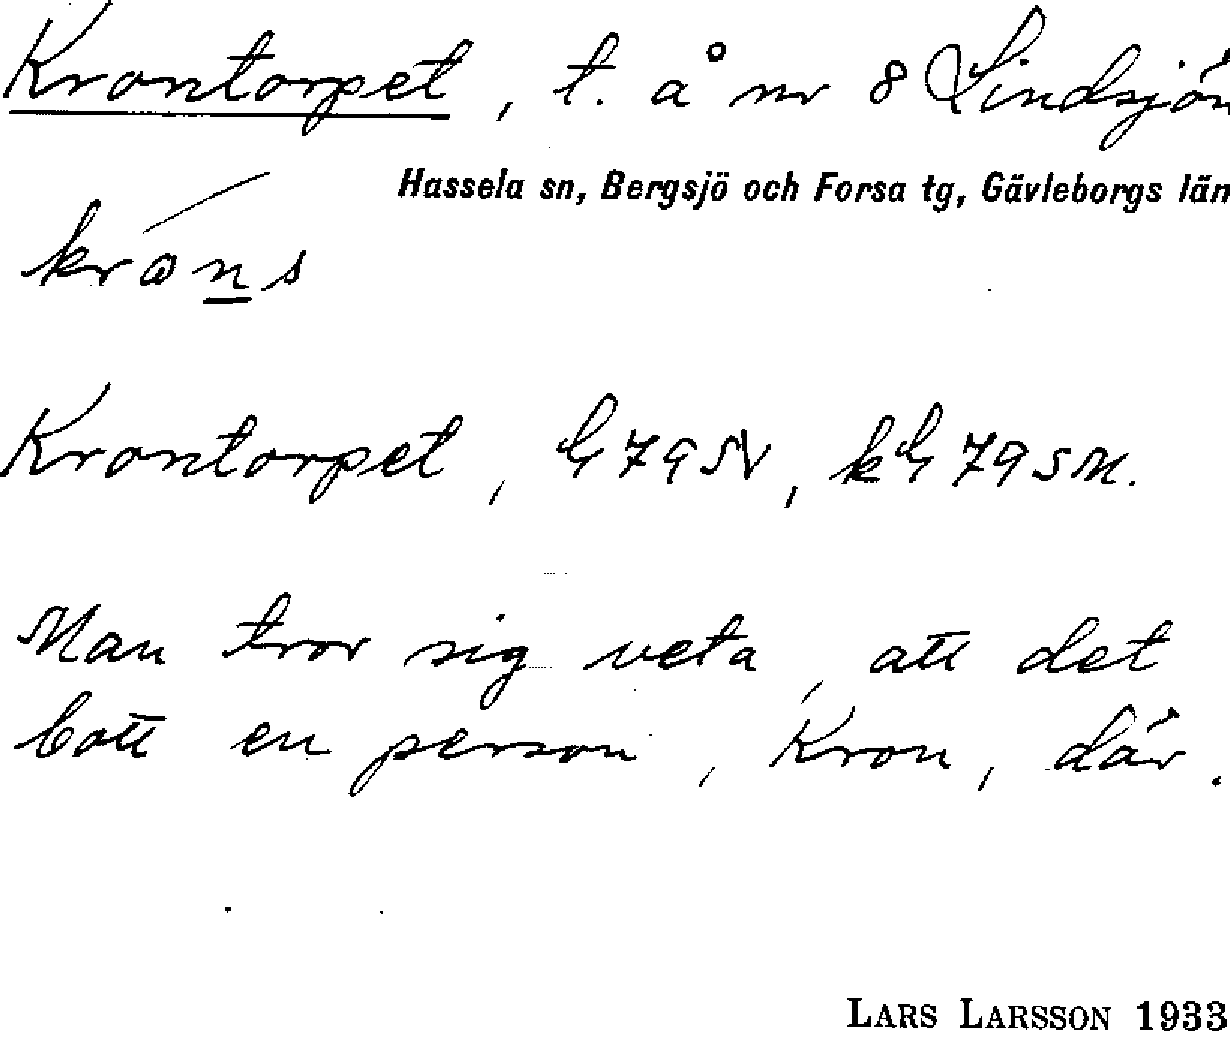 Krontorpet, t. å nr 8 Lindsjön
Hassela sn, Bergsjö och Forsa tg, Gävleborgs län
Krontorpet, G 79 SV, kG 79 SM.
Man tror sig veta, att det
bott en person, Kron, där.
LARS LARSSON 1933